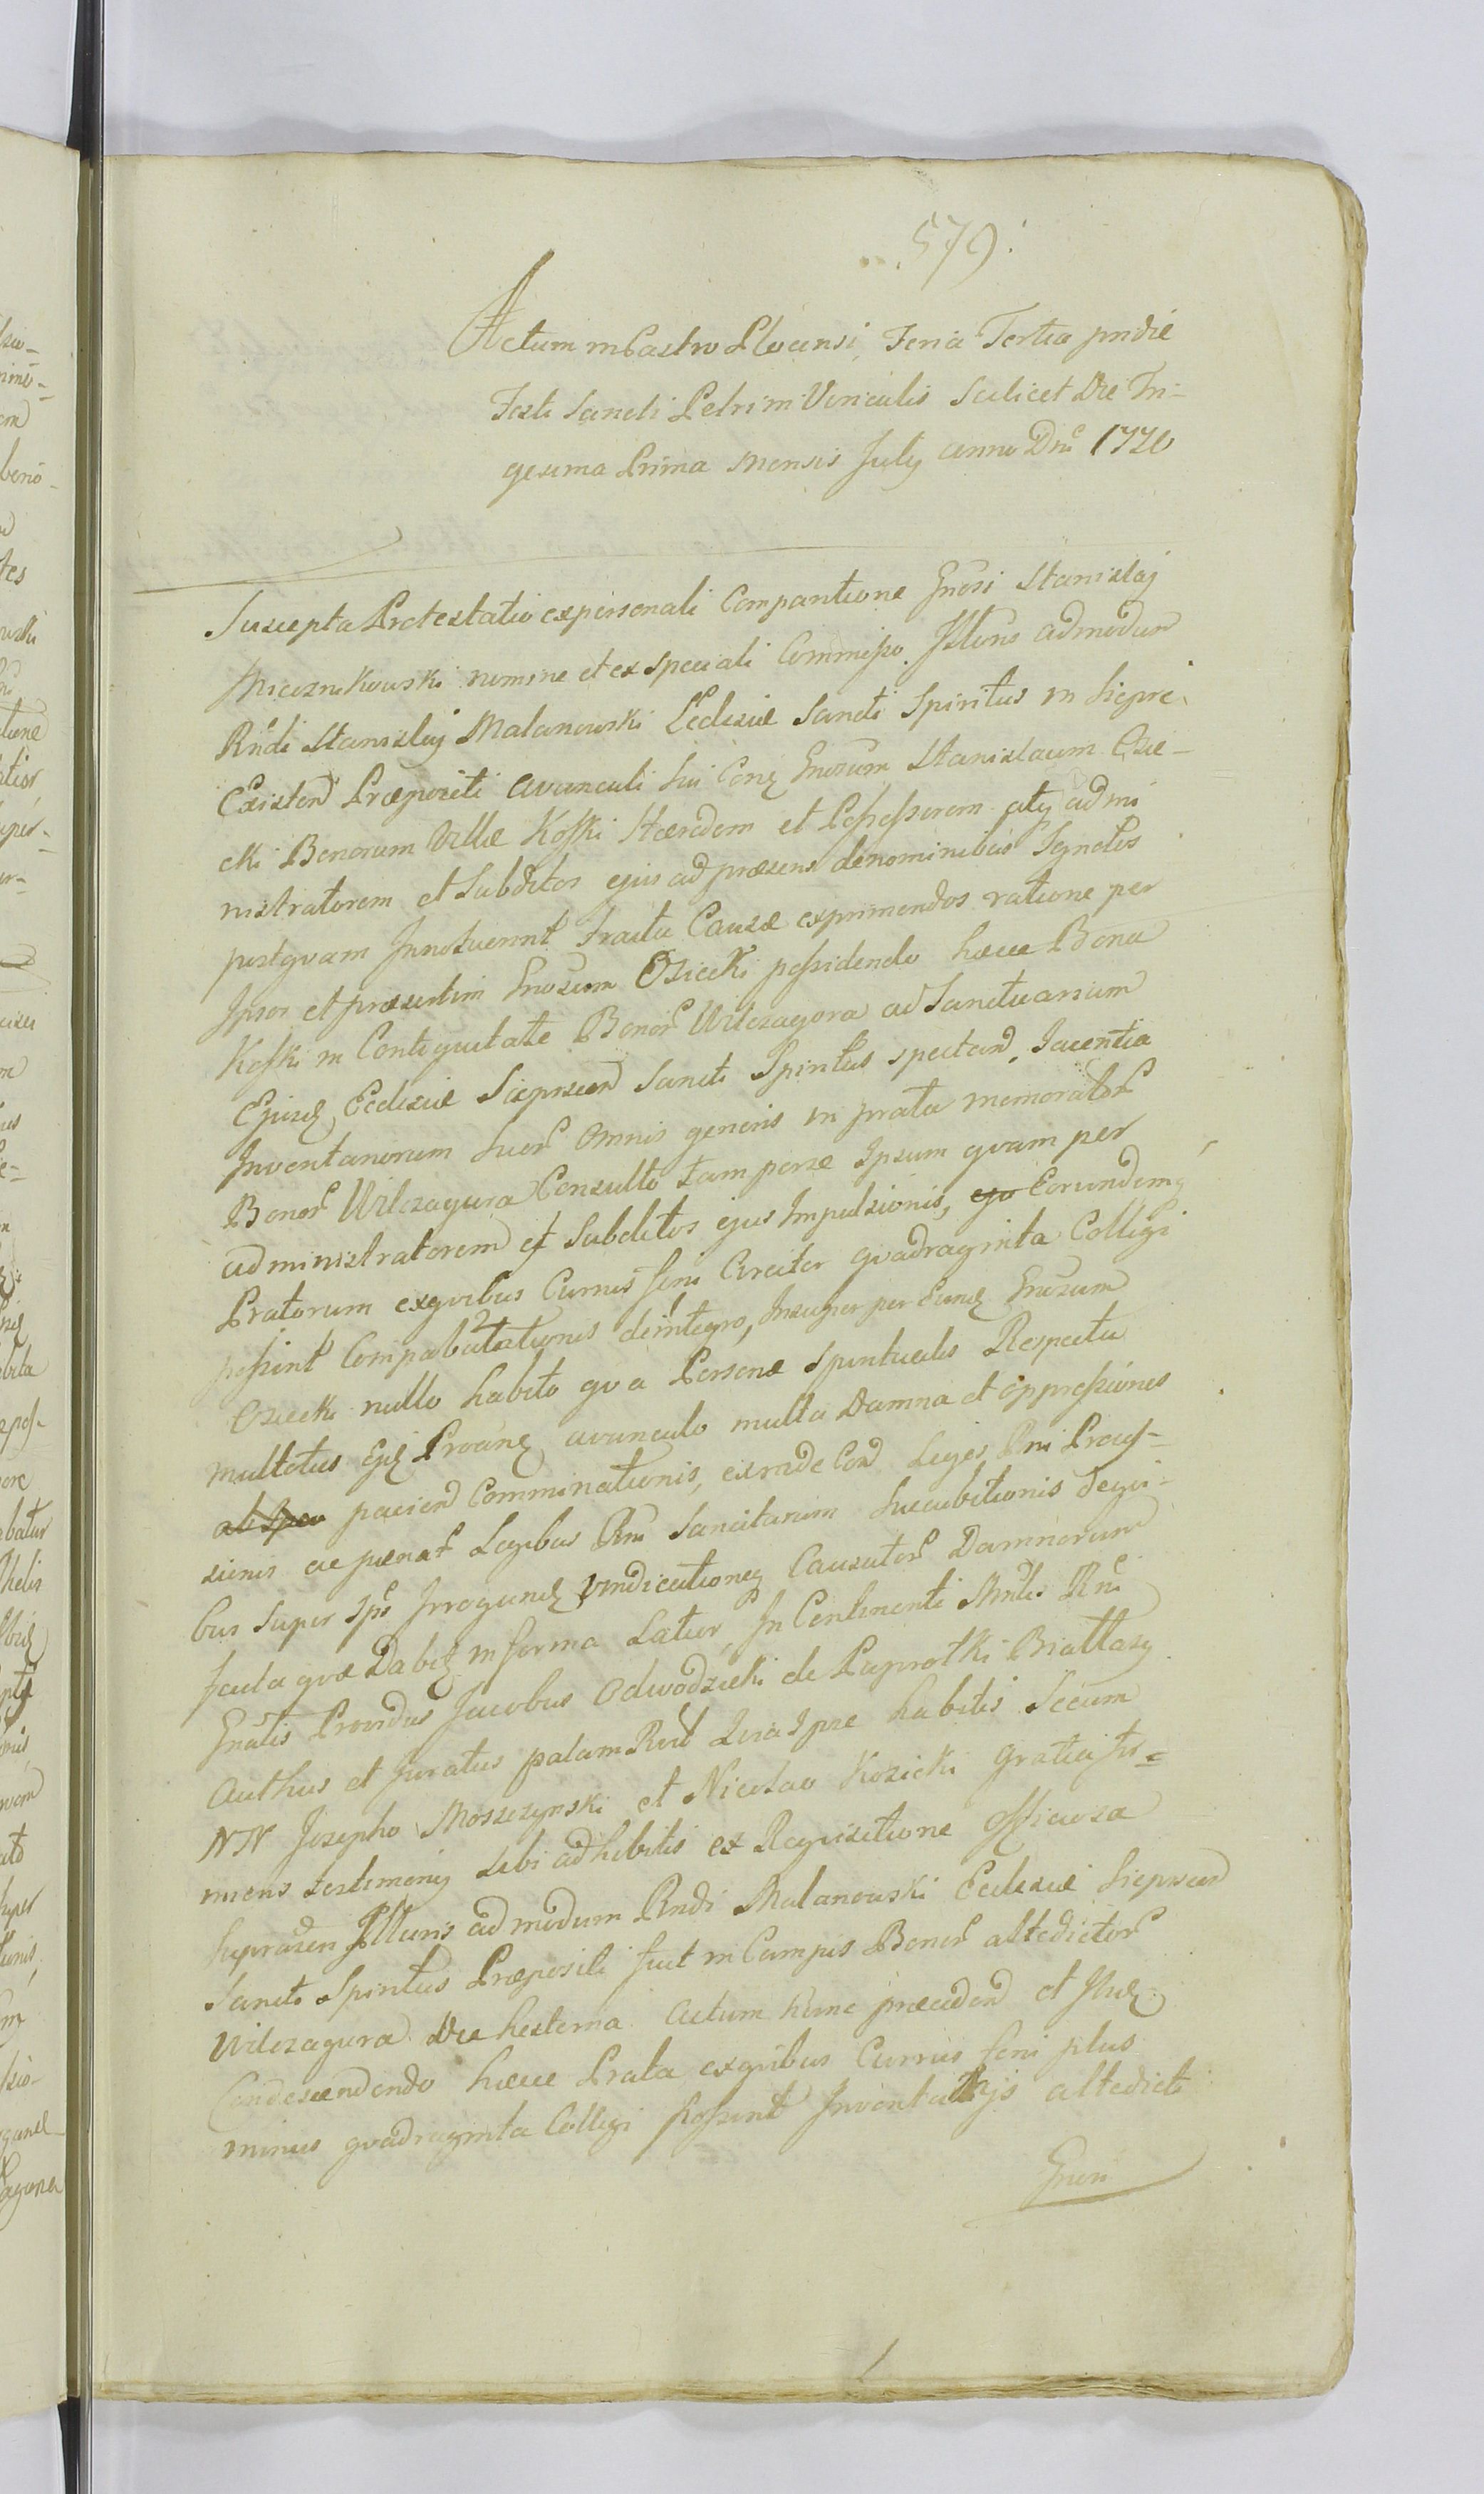 579.
Actum in Castro Plocensi, Feria Tertia pridie
Festi Sancti Petri in Vinculis Scilicet Die Tri-
gesima Prima Mensis July anno Dni 1770
Suscepta Protestatio ex personali Comparitione Gnosi Stanislaj
Miecznikowski nomine et ex speciali Commisso Illtris admodum
Rndi Stanislaj Malanowski Ecclesiæ Sancti Spiritus in Siepre
Existen Præpositi Avunculi sui Con Gnosum Stanislaum Osie-
cki Bonorum Villæ Koski Hæredem et Possessorem atq admi
nistratorem et Subditos ejus ad præsens de nominibus Ignotis
postquam Innotuerint Tractu Causæ exprimendos ratione per
Ipsos et præsertim Gnosum Osiecki possidendo hæcce Bona
Koski in Contiguitate Bonor Wilczagora ad Sanctuarium
Ejusq Ecclesiæ Sieprscen Sancti Spiritus spectan, Jacentia
Inventariorum suor omnis generis in prata memorator
Bonor Wilczagora Consulto tam per se Ipsum quam per
administratorem et Subditos ejus Impulsionis, ejo Eorundemq
Pratorum ex quibus Currus feni Circiter quadraginta Colligi
possint Compabulationis de integro, Insuper per Eunq Gnosum
Osiecki nullo habito qua Personæ Spiritualis Respectu
multotus Ejq Proanq avunculo multa Damna et oppressiones
ab Ipso pacien Comminationis, exinde Con Leges Rni Progres-
sionis ac pænar Legibus Rni Sancitarum Succubitionis Sequi-
bus super Ips Irrogandq Vindicationeq Causator Damnorum
facta quæ Dabiq in forma Latior, In Continenti Mintlis Rni
Gnalis Providus Jacobus Odwodzicki de Paprotki Brattazy
Authus et Juratus palam Rcit Quia Ipse habitis Secum
NN Josepho Moszczynski et Nicolao Kosicki gratia fir=
miens testimonij sibi adhibitis ex Requisitione Officiosa
supradsen Illtris admodum Rndi Malanowski Ecclesiæ Sieprscen
Sancti Spiritus Præpositi fuit in Campis Bonor altedictor
Wilczagora Die hesterna Actum hunc præceden et Illuq
Condescendendo hæcce Prata ex quibus Currus feni plus
minus quadraginta Colligi possint Inventarijs altedicti
Gnosi